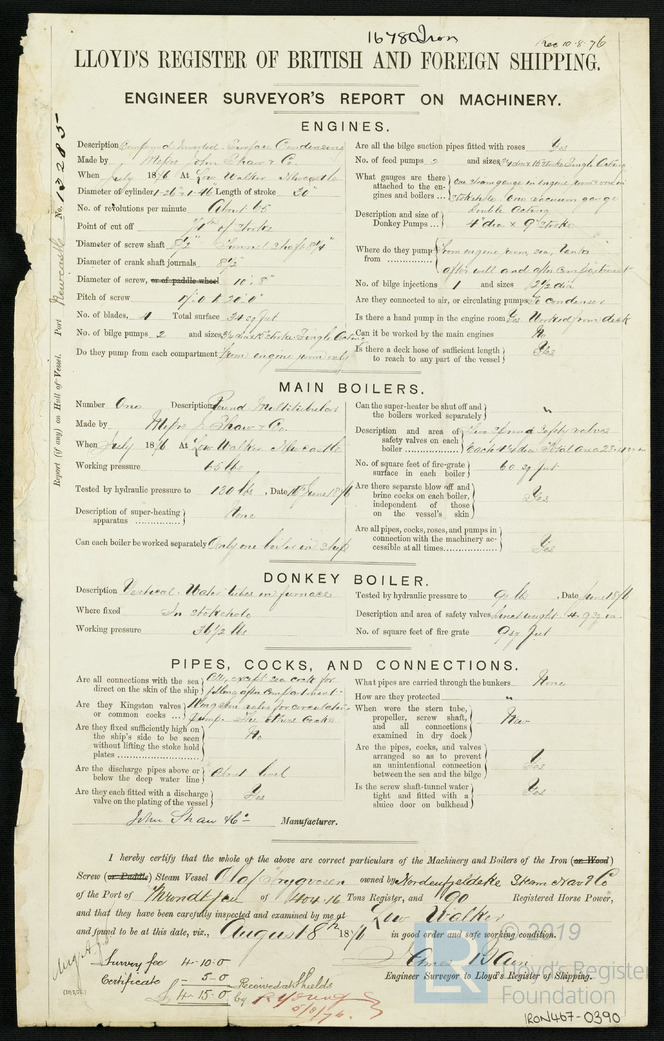 16780 Iron
Rec 10.8.76
LLOYD'S REGISTER OF BRITISH AND FOREIGN SHIPPING.
ENGINEER SURVEYOR'S REPORT ON MACHINERY.
No. 13285
Port Newcastle
Report (if any) on Hull of Vessel.
ENGINES.
Description Compound Inverted Surface Condensing
Made by Messrs John Shaw & Co.
When July 1876 At Low Walker Newcastle
Diameter of cylinder Length of stroke
No. of revolutions per minute About 65
Point of cut off of stroke
Diameter of screw shaft 8½" Tunnel shaft 8¼"
Diameter of crank shaft journals 8½"
Diameter of screw, or of paddle wheel 10'. 8"
Pitch of screw
No. of blades, 4 Total surface
No. of bilge pumps 2 and sizes stroke Single Acting
Do they pump from each compartment from engine room only
Are all the bilge suction pipes fitted with roses Yes
No. of feed pumps 2 and sizes stroke Single Acting
What gauges are there attached to the engines and boilers ... One steam gauge in engine room & one in stokehole. One vacuum gauge
Description and size of Donkey Pumps ... Double Acting 4" dia × 9" stroke
Where do they pump from From engine room, sea, tanks after well and after compartment
No. of bilge injections 1 and sizes 3½ dia
Are they connected to air, or circulating pumps To condenser
Is there a hand pump in the engine room Yes Worked from deck
Can it be worked by the main engines No
Is there a deck hose of sufficient length to reach to any part of the vessel Yes
MAIN BOILERS.
Number One Description Round Multitubular
Made by Messrs J. Shaw & Co.
When July 1876 At Low Walker Newcastle
Working pressure 65 lbs
Tested by hydraulic pressure to 130 lbs, Date June 1876
Description of super-heating apparatus None
Can each boiler be worked separately Only one boiler in ship
Can the super-heater be shut off and the boilers worked separately "
Description and area of safety valves on each boiler Two Round Safety valves
No. of square feet of fire-grate surface in each boiler 60 sq feet
Are there separate blow off and brine cocks on each boiler, independent of those on the vessel's skin Yes
Are all pipes, cocks, roses, and pumps in connection with the machinery accessible at all times Yes
DONKEY BOILER.
Description Vertical. Water tubes in furnace
Where fixed In stokehole
Working pressure 36½ lbs
Tested by hydraulic pressure to , Date June 1876
Description and area of safety valves
No. of square feet of fire grate 9 sq feet
PIPES, COCKS, AND CONNECTIONS.
Are all connections with the sea direct on the skin of the ship All, except sea cock for filling after compartment
Are they Kingston valves or common cocks ... Kingston valve for circulating pump. The others Cocks
Are they fixed sufficiently high on the ship's side to be seen without lifting the stoke hold plates No
Are the discharge pipes above or below the deep water line About level
Are they each fitted with a discharge valve on the plating of the vessel Yes
What pipes are carried through the bunkers None
How are they protected "
When were the stern tube, propeller, screw shaft, and all connections examined in dry dock New
Are the pipes, cocks, and valves arranged so as to prevent an unintentional connection between the sea and the bilge Yes
Is the screw shaft-tunnel water tight and fitted with a sluice door on bulkhead Yes
John Shaw & Co Manufacturer.
I hereby certify that the whole of the above are correct particulars of the Machinery and Boilers of the Iron (or Wood)
Screw (or Paddle) Steam Vessel Olaf Trygvesen owned by Nordenfjeldske Steam Nav. Co
of the Port of Throndtjem of 404.16 Tons Register, and 90 Registered Horse Power,
and that they have been carefully inspected and examined by me at Low Walker
and found to be at this date, viz., August 8th 1876 in good order and safe working condition.
James Blair
Engineer Surveyor to Lloyd's Register of Shipping.
Survey fee 4-10-0
Certificate 5-0
4-15-0
Received at Shields
by R Young
© 2019
LR
Lloyd's Register
Foundation
IRON467-0390